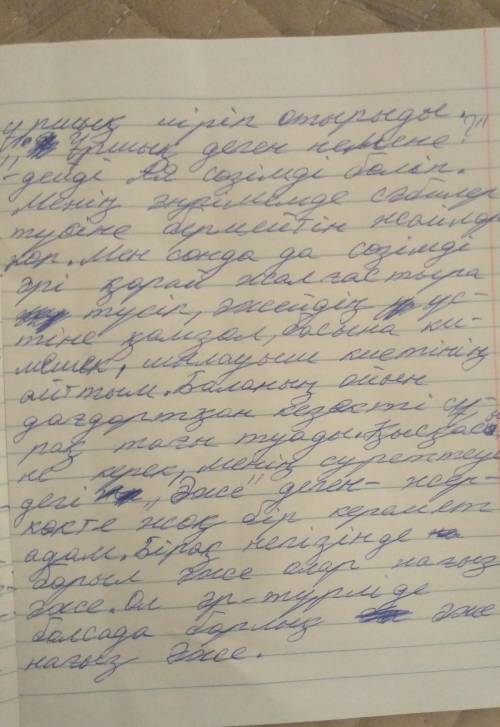 ұршық иіріп отырыды.
"Ұршық деген немене?"
-дейді ол сөзімді бөліп.
Менің әңгімемде сәбилер
түбіне бермейтін жәйлер
көп. Мен сонда да сөзімді
әрі қарай жалғастыра
түсіп, әжейдің үс-
тіне қамзол, басына ки-
мешек, шылауыш киетінін
айттым. Баланың ойын
дағдартқан кезекті сұ-
рақ тағы туады. Қысқасы
не керек, менің суреттеу-
дегі "Әже" деген- жер-
көкте жоқ бір керемет
адам. Бірақ негізінде
барыл әже олар нағыз
әже. Ол әр-түрлі де
болсада барлық әже
нағыз әже.